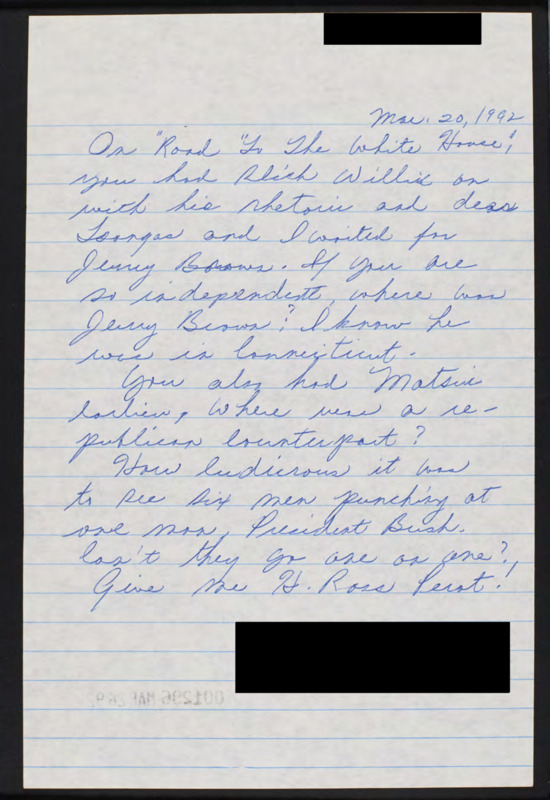 Mar. 20, 1992
On "Road "To The White House",
you had Slick Willie on
with his rhetoric and dear
Tsongas and I waited for
Jerry Brown. If you are
so independent, where was
Jerry Brown? I know he
was in Connecticut.
You also had Matsui
earlier, where was a re-
publican counterpart?
How ludicrous it was
to see six men punching at
one man, President Bush.
Can't they go one on one?,
Give me H. Ross Perot!
001296 MAR 26 92